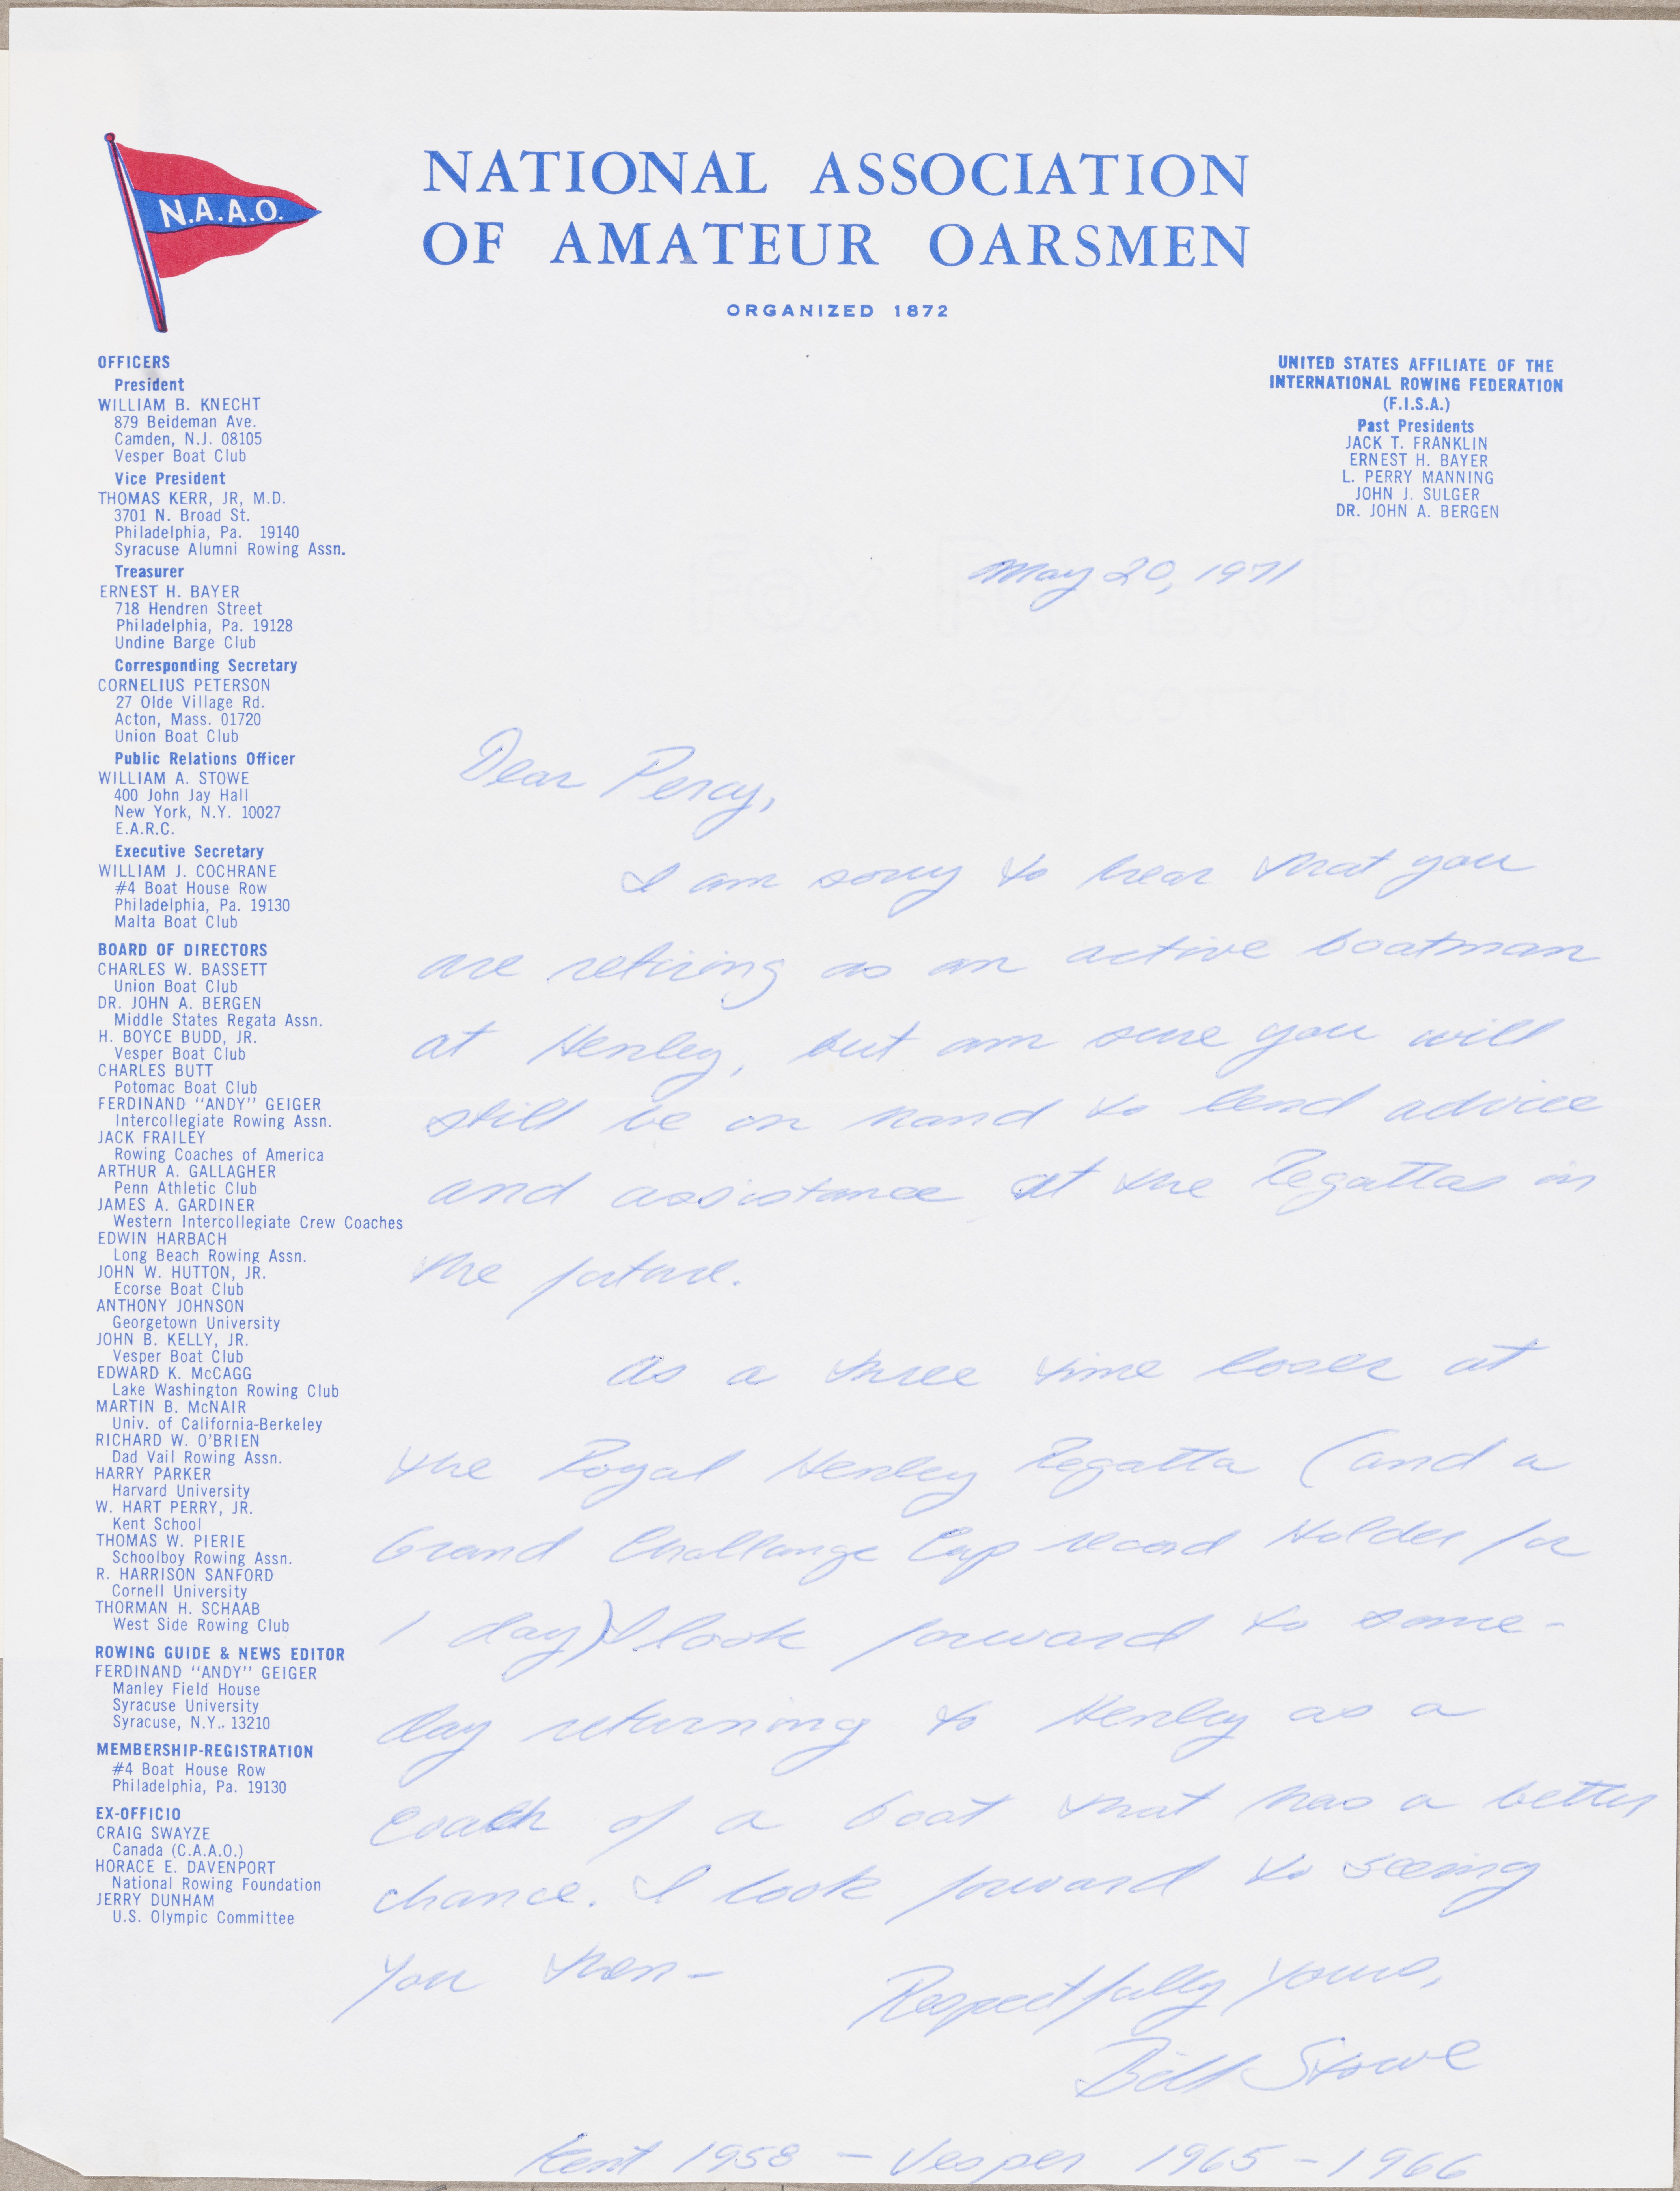 N.A.A.O.
NATIONAL ASSOCIATION
OF AMATEUR OARSMEN
ORGANIZED 1872
OFFICERS
President
WILLIAM B. KNECHT
879 Beideman Ave.
Camden, N.J. 08105
Vesper Boat Club
Vice President
THOMAS KERR, JR, M.D.
3701 N. Broad St.
Philadelphia, Pa. 19140
Syracuse Alumni Rowing Assn.
Treasurer
ERNEST H. BAYER
718 Hendren Street
Philadelphia, Pa. 19128
Undine Barge Club
Corresponding Secretary
CORNELIUS PETERSON
27 Olde Village Rd.
Acton, Mass. 01720
Union Boat Club
Public Relations Officer
WILLIAM A. STOWE
400 John Jay Hall
New York, N.Y. 10027
E.A.R.C.
Executive Secretary
WILLIAM J. COCHRANE
#4 Boat House Row
Philadelphia, Pa. 19130
Malta Boat Club
BOARD OF DIRECTORS
CHARLES W. BASSETT
Union Boat Club
DR. JOHN A. BERGEN
Middle States Regata Assn.
H. BOYCE BUDD, JR.
Vesper Boat Club
CHARLES BUTT
Potomac Boat Club
FERDINAND "ANDY" GEIGER
Intercollegiate Rowing Assn.
JACK FRAILEY
Rowing Coaches of America
ARTHUR A. GALLAGHER
Penn Athletic Club
JAMES A. GARDINER
Western Intercollegiate Crew Coaches
EDWIN HARBACH
Long Beach Rowing Assn.
JOHN W. HUTTON, JR.
Ecorse Boat Club
ANTHONY JOHNSON
Georgetown University
JOHN B. KELLY, JR.
Vesper Boat Club
EDWARD K. McCAGG
Lake Washington Rowing Club
MARTIN B. McNAIR
Univ. of California-Berkeley
RICHARD W. O'BRIEN
Dad Vail Rowing Assn.
HARRY PARKER
Harvard University
W. HART PERRY, JR.
Kent School
THOMAS W. PIERIE
Schoolboy Rowing Assn.
R. HARRISON SANFORD
Cornell University
THORMAN H. SCHAAB
West Side Rowing Club
ROWING GUIDE & NEWS EDITOR
FERDINAND "ANDY" GEIGER
Manley Field House
Syracuse University
Syracuse, N.Y., 13210
MEMBERSHIP-REGISTRATION
#4 Boat House Row
Philadelphia, Pa. 19130
EX-OFFICIO
CRAIG SWAYZE
Canada (C.A.A.O.)
HORACE E. DAVENPORT
National Rowing Foundation
JERRY DUNHAM
U.S. Olympic Committee
UNITED STATES AFFILIATE OF THE
INTERNATIONAL ROWING FEDERATION
(F.I.S.A.)
Past Presidents
JACK T. FRANKLIN
ERNEST H. BAYER
L. PERRY MANNING
JOHN J. SULGER
DR. JOHN A. BERGEN
FOX RIVER BOND
25% COTTON
May 20, 1971
Dear Percy,
I am sorry to hear that you
are retiring as an active boatman
at Henley, but am sure you will
still be on hand to lend advice
and assistance at the Regattas in
the future.
As a three time loser at
the Royal Henley Regatta (and a
Grand Challange Cup record Holder for
1 day) I look forward to some-
day returning to Henley as a
coach of a boat that has a better
chance. I look forward to seeing
you then-
Respectfully Yours,
Bill Stowe
Kent 1958 - Vesper 1965-1966